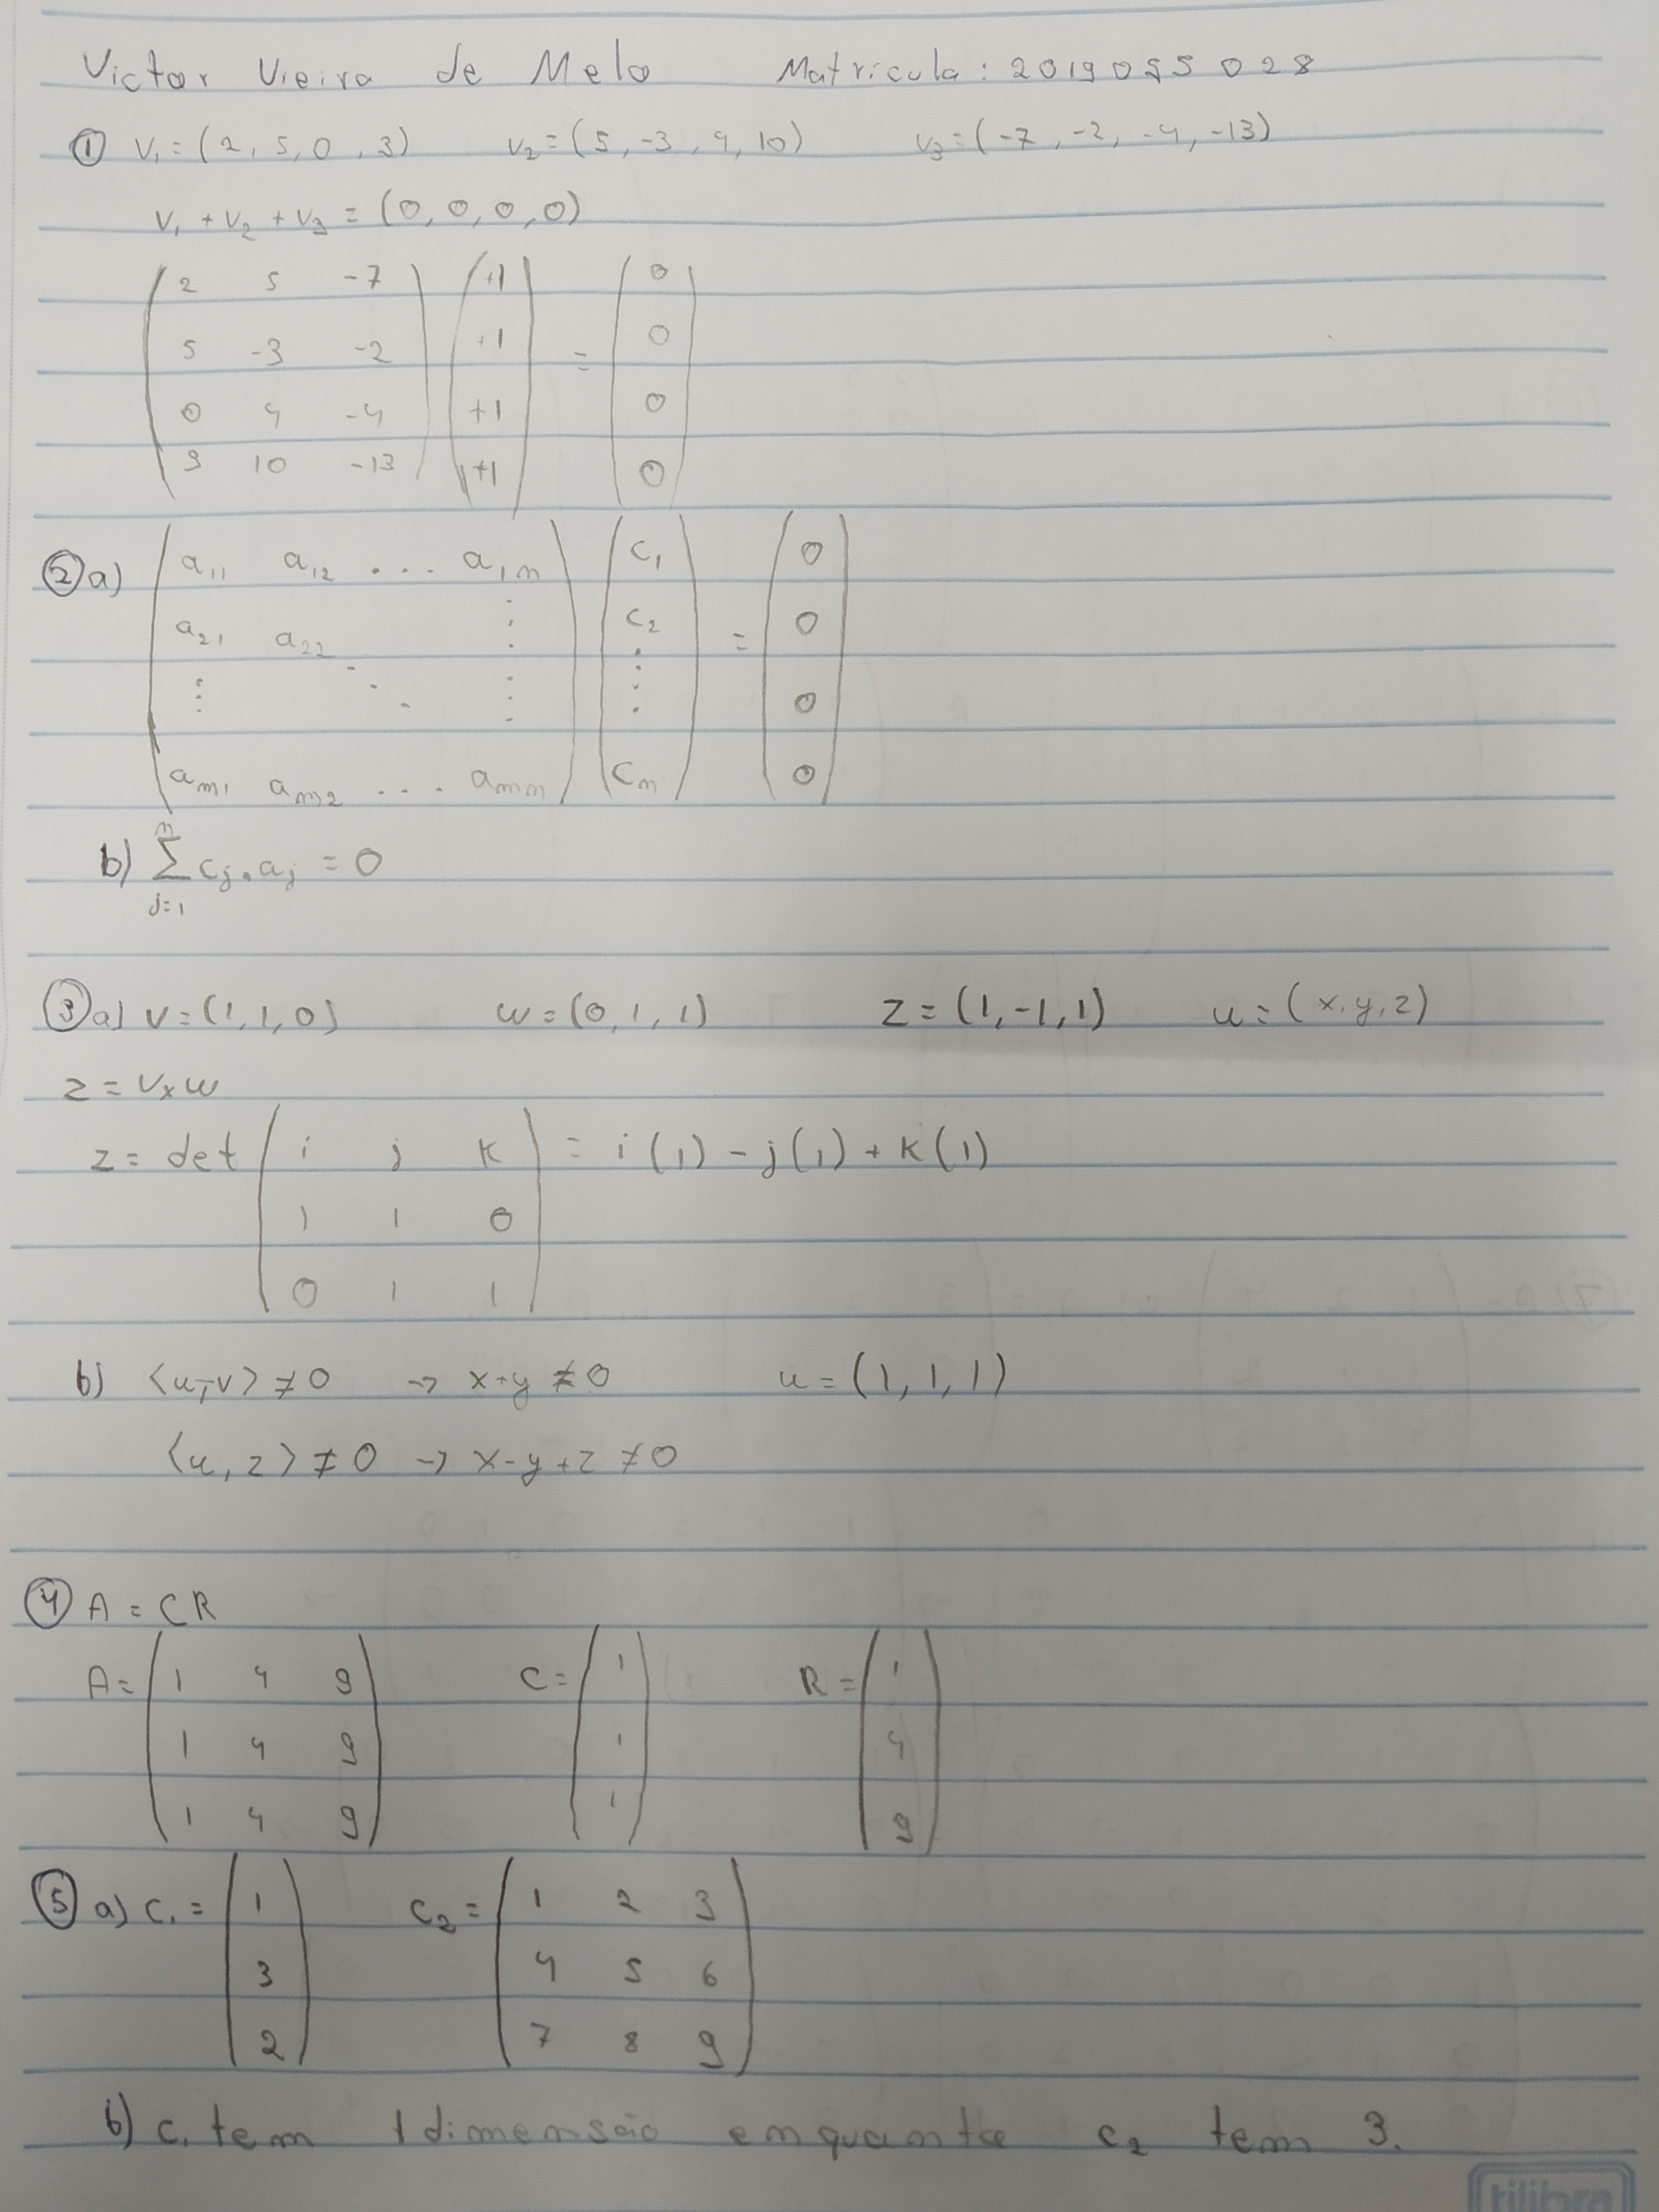 Victor Vieira de Melo Matricula: 2019055028
① V₁ = (2, 5, 0, 3) V₂ = (5, -3, 4, 10) V₃ = (-7, -2, -4, -13)
V₁ + V₂ + V₃ = (0, 0, 0, 0)
( 2 5 -7 ) ( +1 ) ( 0 )
( 5 -3 -2 ) ( +1 ) = ( 0 )
( 0 4 -4 ) ( +1 ) ( 0 )
( 3 10 -13 ) ( +1 ) ( 0 )
② a) ( a₁₁ a₁₂ ... a₁ₙ ) ( c₁ ) ( 0 )
( a₂₁ a₂₂ ⋮ ) ( c₂ ) = ( 0 )
( ⋮ ⋱ ⋮ ) ( ⋮ ) ( 0 )
( aₘ₁ aₘ₂ ... aₘₙ ) ( cₙ ) ( 0 )
b) ∑ⁿⱼ₌₁ cⱼ . aⱼ = 0
③ a) V = (1, 1, 0) w = (0, 1, 1) z = (1, -1, 1) u = (x, y, z)
z = V x w
z = det ( i j k ) = i(1) - j(1) + k(1)
( 1 1 0 )
( 0 1 1 )
b) <u, v> ≠ 0 → x+y ≠ 0 u = (1, 1, 1)
<u, z> ≠ 0 → x-y+z ≠ 0
④ A = CR
A = ( 1 4 9 ) C = ( 1 ) R = ( 1 )
( 1 4 9 ) ( 1 ) ( 4 )
( 1 4 9 ) ( 1 ) ( 9 )
⑤ a) C₁ = ( 1 ) C₂ = ( 1 2 3 )
( 3 ) ( 4 5 6 )
( 2 ) ( 7 8 9 )
b) C₁ tem 1 dimensão enquanto C₂ tem 3.
tilibra